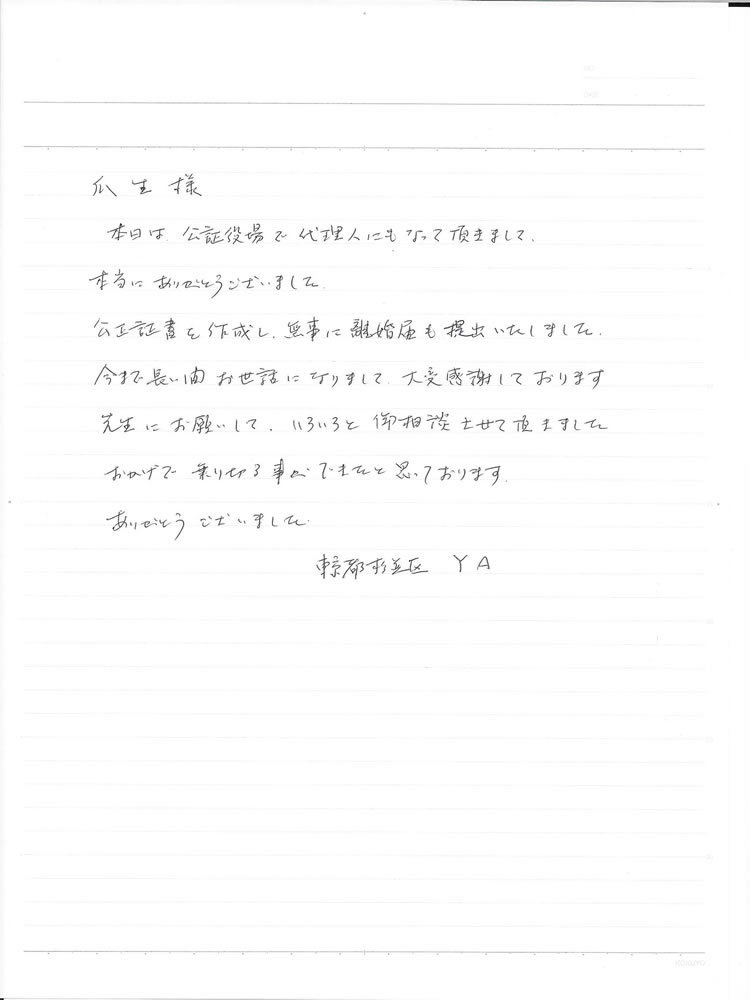 NO.
DATE
瓜生様
本日は、公証役場で代理人にもなって頂きまして、
本当にありがとうございました。
公正証書を作成し、無事に離婚届も提出いたしました。
今まで長い間お世話になりまして、大変感謝しております
先生にお願いして、いろいろと御相談させて頂きました
おかげで乗り切る事ができたと思っております。
ありがとうございました。
東京都杉並区 YA
KOKUYO